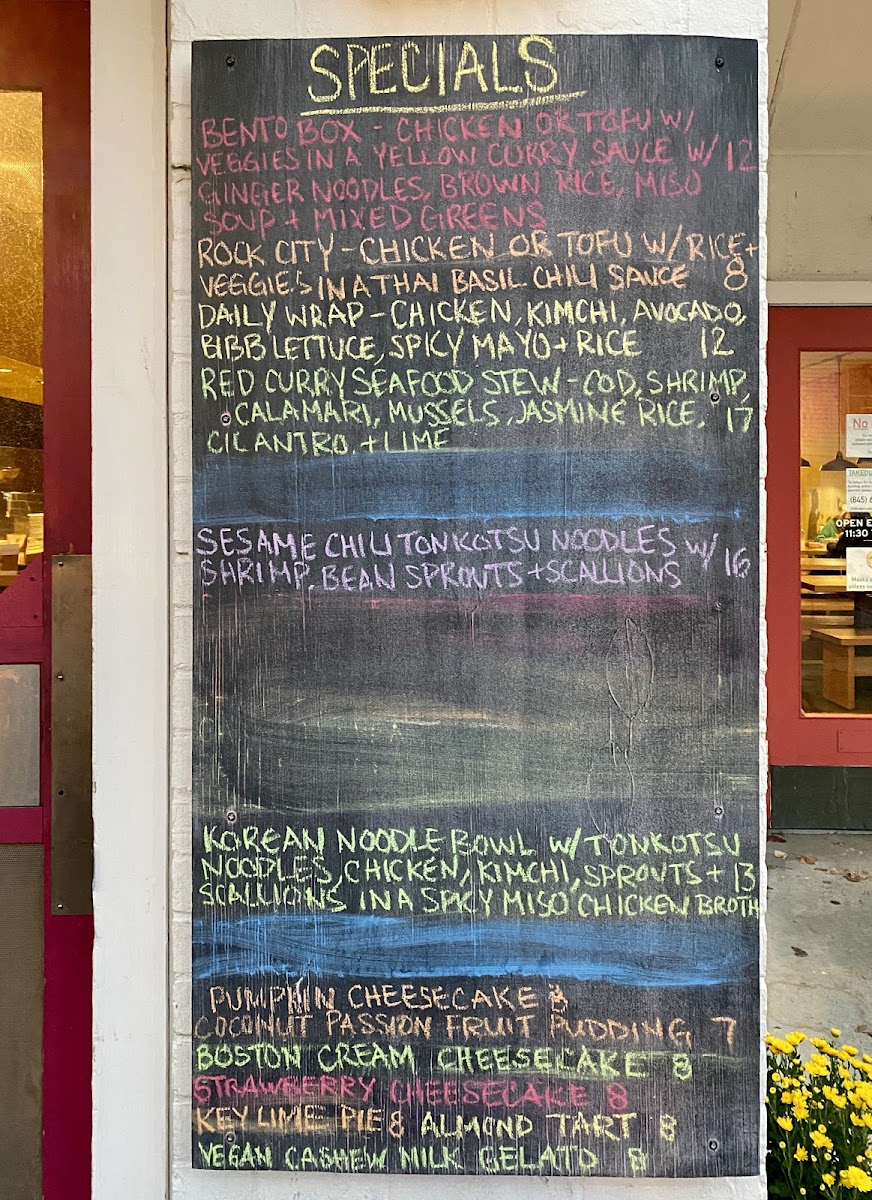 SPECIALS
BENTO BOX - CHICKEN OR TOFU W/
VEGGIES IN A YELLOW CURRY SAUCE W/ 12
GINGER NOODLES, BROWN RICE, MISO
SOUP + MIXED GREENS
ROCK CITY - CHICKEN OR TOFU W/ RICE +
VEGGIES IN A THAI BASIL CHILI SAUCE 8
DAILY WRAP - CHICKEN, KIMCHI, AVOCADO,
BIBB LETTUCE, SPICY MAYO + RICE 12
RED CURRY SEAFOOD STEW - COD, SHRIMP,
CALAMARI, MUSSELS, JASMINE RICE, 17
CILANTRO, + LIME
SESAME CHILI TONKOTSU NOODLES W/ 16
SHRIMP, BEAN SPROUTS + SCALLIONS
KOREAN NOODLE BOWL W/ TONKOTSU
NOODLES, CHICKEN, KIMCHI, SPROUTS + 13
SCALLIONS IN A SPICY MISO CHICKEN BROTH
PUMPKIN CHEESECAKE 8
COCONUT PASSION FRUIT PUDDING 7
BOSTON CREAM CHEESECAKE 8
STRAWBERRY CHEESECAKE 8
KEY LIME PIE 8 ALMOND TART 8
VEGAN CASHEW MILK GELATO 8
No
TAKEOU
(845) 6
OPEN E
11:30